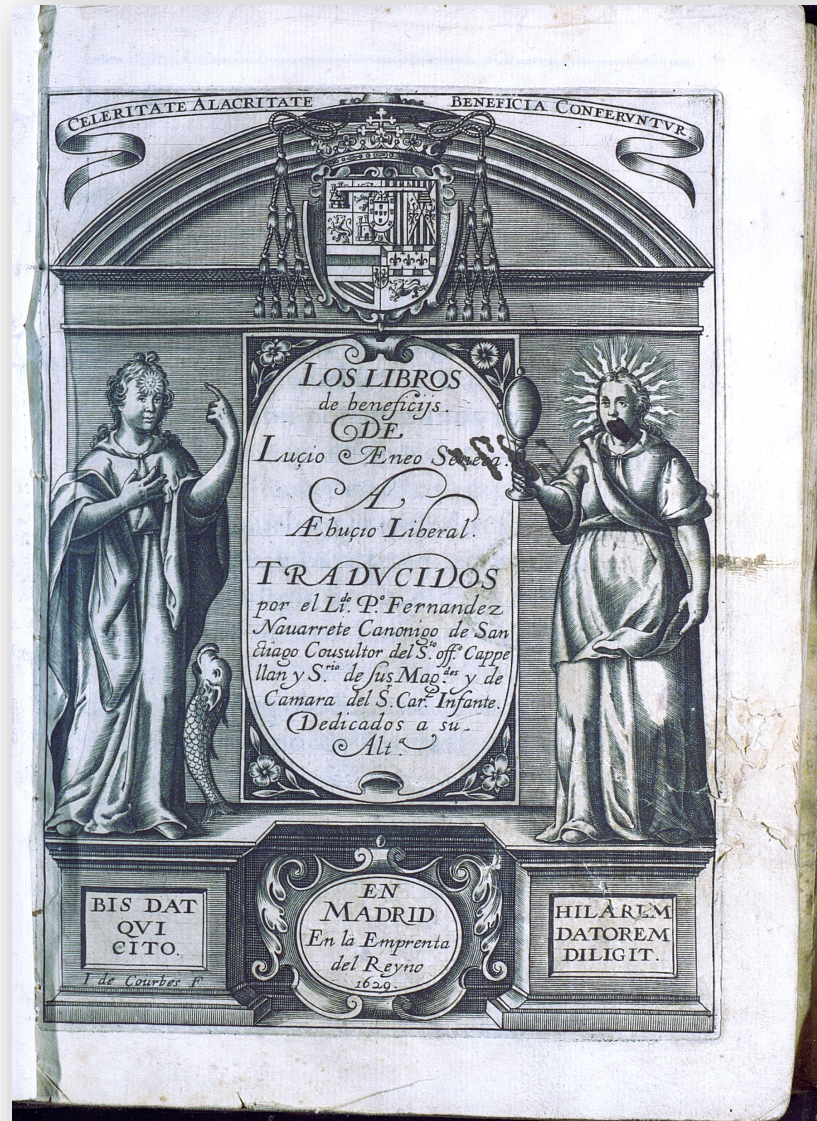 CELERITATE ALACRITATE BENEFICIA CONFERVNTVR
LOS LIBROS
de beneficijs.
DE
Luçio Æneo Seneca.
A
Æbuçio Liberal.
TRADVCIDOS
por el Li.do P.o Fernandez
Nauarrete Canonigo de San
ctiago Cousultor del S.to off.o Cappe
llan y S.rio de sus Mag.des y de
Camara del S. Car. Infante.
Dedicados a su
Alt.a
BIS DAT
QVI
CITO.
I de Courbes F
EN
MADRID
En la Emprenta
del Reyno
1629.
HILAREM
DATOREM
DILIGIT.